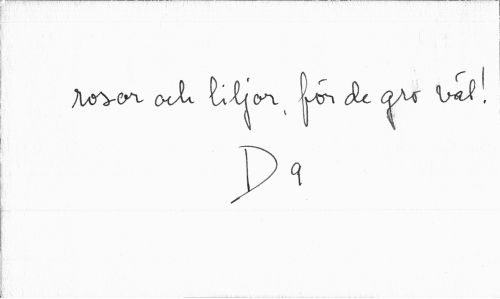 rosor och liljor, för de gro väl!
D 9